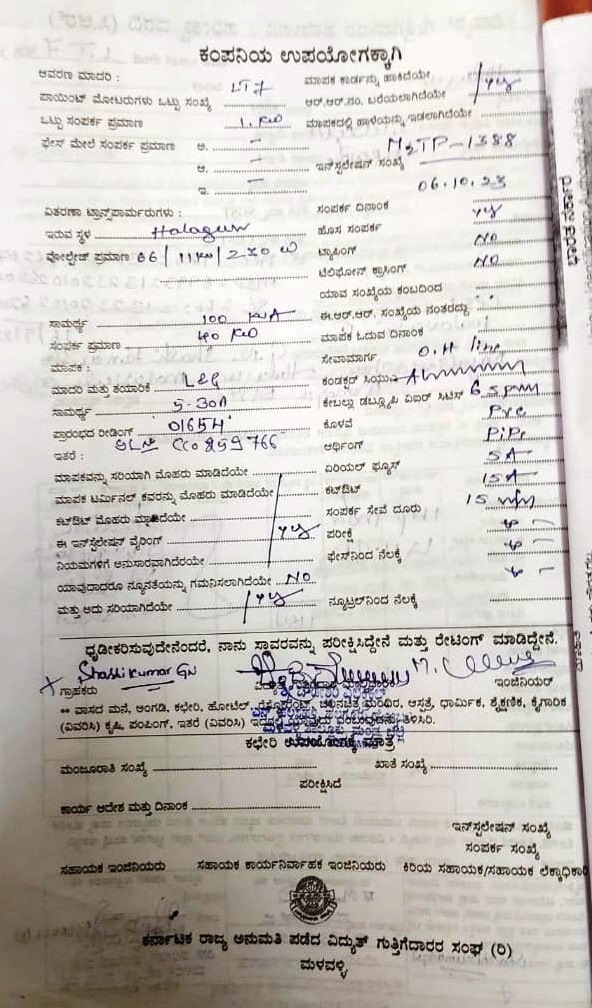 ಕಂಪನಿಯ ಉಪಯೋಗಕ್ಕಾಗಿ
ಆವರಣ ಮಾದರಿ : LT7 ಮಾಪಕ ಕಾರ್ಡನ್ನು ಹಾಕಿದೆಯೇ
ಪಾಯಿಂಟ್ ಮೋಟರುಗಳು ಒಟ್ಟು ಸಂಖ್ಯೆ ಆರ್.ಆರ್.ನಂ. ಬರೆಯಲಾಗಿದೆಯೇ yes
ಒಟ್ಟು ಸಂಪರ್ಕ ಪ್ರಮಾಣ 1. KW ಮಾಪಕದಲ್ಲಿ ಹಾಳೆಯನ್ನು ಇಡಲಾಗಿದೆಯೇ
ಫೇಸ್ ಮೇಲೆ ಸಂಪರ್ಕ ಪ್ರಮಾಣ ಅ. –
ಆ. – ಇನ್‌ಸ್ಟಲೇಷನ್ ಸಂಖ್ಯೆ MSTP-1388
ಇ. – 06.10.23
ವಿತರಣಾ ಟ್ರಾನ್ಸ್‌ಫಾರ್ಮರುಗಳು : ಸಂಪರ್ಕ ದಿನಾಂಕ
ಇರುವ ಸ್ಥಳ Halagur ಹೊಸ ಸಂಪರ್ಕ yes
ವೋಲ್ಟೇಜ್ ಪ್ರಮಾಣ 66/11KV/230 V ಟ್ಯಾಪಿಂಗ್ NO
ಟೆಲಿಫೋನ್ ಕ್ರಾಸಿಂಗ್ NO
ಯಾವ ಸಂಖ್ಯೆಯ ಕಂಬದಿಂದ
ಸಾಮರ್ಥ್ಯ 100 KVA ಈ.ಆರ್.ಆರ್. ಸಂಖ್ಯೆಯ ನಂತರದ್ದು
ಸಂಪರ್ಕ ಪ್ರಮಾಣ 40 KW ಮಾಪಕ ಓದುವ ದಿನಾಂಕ
ಮಾಪಕ : ಸೇವಾಮಾರ್ಗ O.H line
ಮಾದರಿ ಮತ್ತು ತಯಾರಿಕೆ L&G ಕಂಡಕ್ಟರ್
ಸಾಮರ್ಥ್ಯ 5-30A ಕೇಬಲ್ಲು ಡಬ್ಲ್ಯೂಪಿ ಏಐರ್ ಸಿಟಿಸ್
ಪ್ರಾರಂಭದ ರೀಡಿಂಗ್ 01654 ಕೊಳವೆ PVC
ಇತರೆ : SLNo CC0859766 ಆರ್ಥಿಂಗ್ PiPe
ಮಾಪಕವನ್ನು ಸರಿಯಾಗಿ ಮೊಹರು ಮಾಡಿದೆಯೇ ಏರಿಯಲ್ ಫ್ಯೂಸ್ 5A
ಮಾಪಕ ಟರ್ಮಿನಲ್ ಕವರನ್ನು ಮೊಹರು ಮಾಡಿದೆಯೇ ಕಟ್‌ಔಟ್ 15A
ಕಟ್‌ಔಟ್ ಮೊಹರು ಮಾಡಿದೆಯೇ ಸಂಪರ್ಕ ಸೇವೆ ದೂರು 15 mtr
ಈ ಇನ್‌ಸ್ಟಲೇಷನ್ ವೈರಿಂಗ್ yes ಪರೀಕ್ಷೆ
ನಿಯಮಗಳಿಗೆ ಅನುಸಾರವಾಗಿದೆರಯೇ ಫೇಸ್‌ನಿಂದ ನೆಲಕ್ಕೆ
ಯಾವುದಾದರೂ ನ್ಯೂನತೆಯನ್ನು ಗಮನಿಸಲಾಗಿದೆಯೇ NO
ಮತ್ತು ಅದು ಸರಿಯಾಗಿದೆಯೇ yes ನ್ಯೂಟ್ರಲ್‌ನಿಂದ ನೆಲಕ್ಕೆ
ಧೃಡೀಕರಿಸುವುದೇನೆಂದರೆ, ನಾನು ಸ್ಥಾವರವನ್ನು ಪರೀಕ್ಷಿಸಿದ್ದೇನೆ ಮತ್ತು ರೇಟಿಂಗ್ ಮಾಡಿದ್ದೇನೆ.
Shashikumar GN
ಗ್ರಾಹಕರು ಇಂಜಿನಿಯರ್
** ವಾಸದ ಮನೆ, ಅಂಗಡಿ, ಕಛೇರಿ, ಹೋಟೆಲ್, ರೆಸ್ಟೋರೆಂಟ್, ಚಲನಚಿತ್ರ ಮಂದಿರ, ಆಸ್ಪತ್ರೆ, ಧಾರ್ಮಿಕ, ಶೈಕ್ಷಣಿಕ, ಕೈಗಾರಿಕ
(ವಿವರಿಸಿ) ಕೃಷಿ, ಪಂಪಿಂಗ್, ಇತರೆ (ವಿವರಿಸಿ) ತಿಳಿಸಿರಿ.
ಕಛೇರಿ ಉಪಯೋಗಕ್ಕೆ ಮಾತ್ರ
ಮಂಜೂರಾತಿ ಸಂಖ್ಯೆ ಖಾತೆ ಸಂಖ್ಯೆ
ಪರೀಕ್ಷಿಸಿದೆ
ಕಾರ್ಯ ಆದೇಶ ಮತ್ತು ದಿನಾಂಕ
ಇನ್‌ಸ್ಟಲೇಷನ್ ಸಂಖ್ಯೆ
ಸಂಪರ್ಕ ಸಂಖ್ಯೆ
ಸಹಾಯಕ ಇಂಜಿನಿಯರು ಸಹಾಯಕ ಕಾರ್ಯನಿರ್ವಾಹಕ ಇಂಜಿನಿಯರು ಕಿರಿಯ ಸಹಾಯಕ/ಸಹಾಯಕ ಲೆಕ್ಕಾಧಿಕಾರಿ
ಕರ್ನಾಟಕ ರಾಜ್ಯ ಅನುಮತಿ ಪಡೆದ ವಿದ್ಯುತ್ ಗುತ್ತಿಗೆದಾರರ ಸಂಘ (ರಿ)
ಮಳವಳ್ಳಿ
ಭಾರತ ಸರ್ಕಾರ